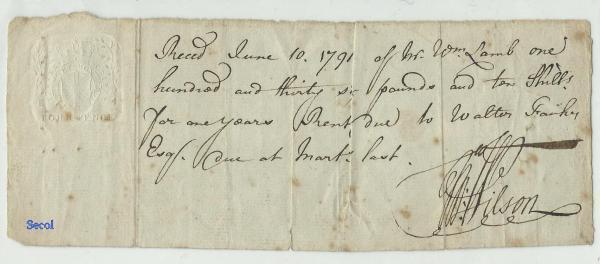 Reced June 10. 1791 of Mr. Wm. Lamb one
hundred and thirty six pounds and ten Shills.
for one years Rent due to Walter
Esqr. due at Marts. last.
Wm. Wilson
FOUR PENCE
Secol